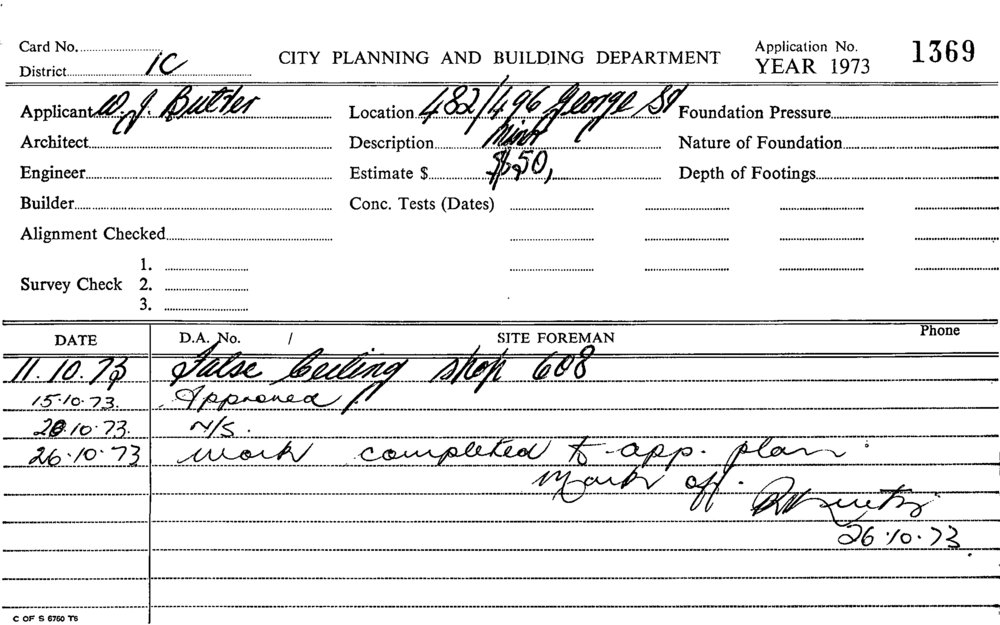 Card No.
District 1C
CITY PLANNING AND BUILDING DEPARTMENT
Application No. 1369
YEAR 1973
Applicant W. J. Butler
Location 482/496 George St
Foundation Pressure
Architect
Description Minor
Nature of Foundation
Engineer
Estimate $ $650,
Depth of Footings
Builder
Conc. Tests (Dates)
Alignment Checked
Survey Check 1.
2.
3.
DATE D.A. No. / SITE FOREMAN Phone
11.10.73 False Ceiling shop 608
15.10.73. Approved
10.73. N/S.
26.10.73 Work completed to app. plan
Mark off.
26.10.73.
C OF S 6750 T6